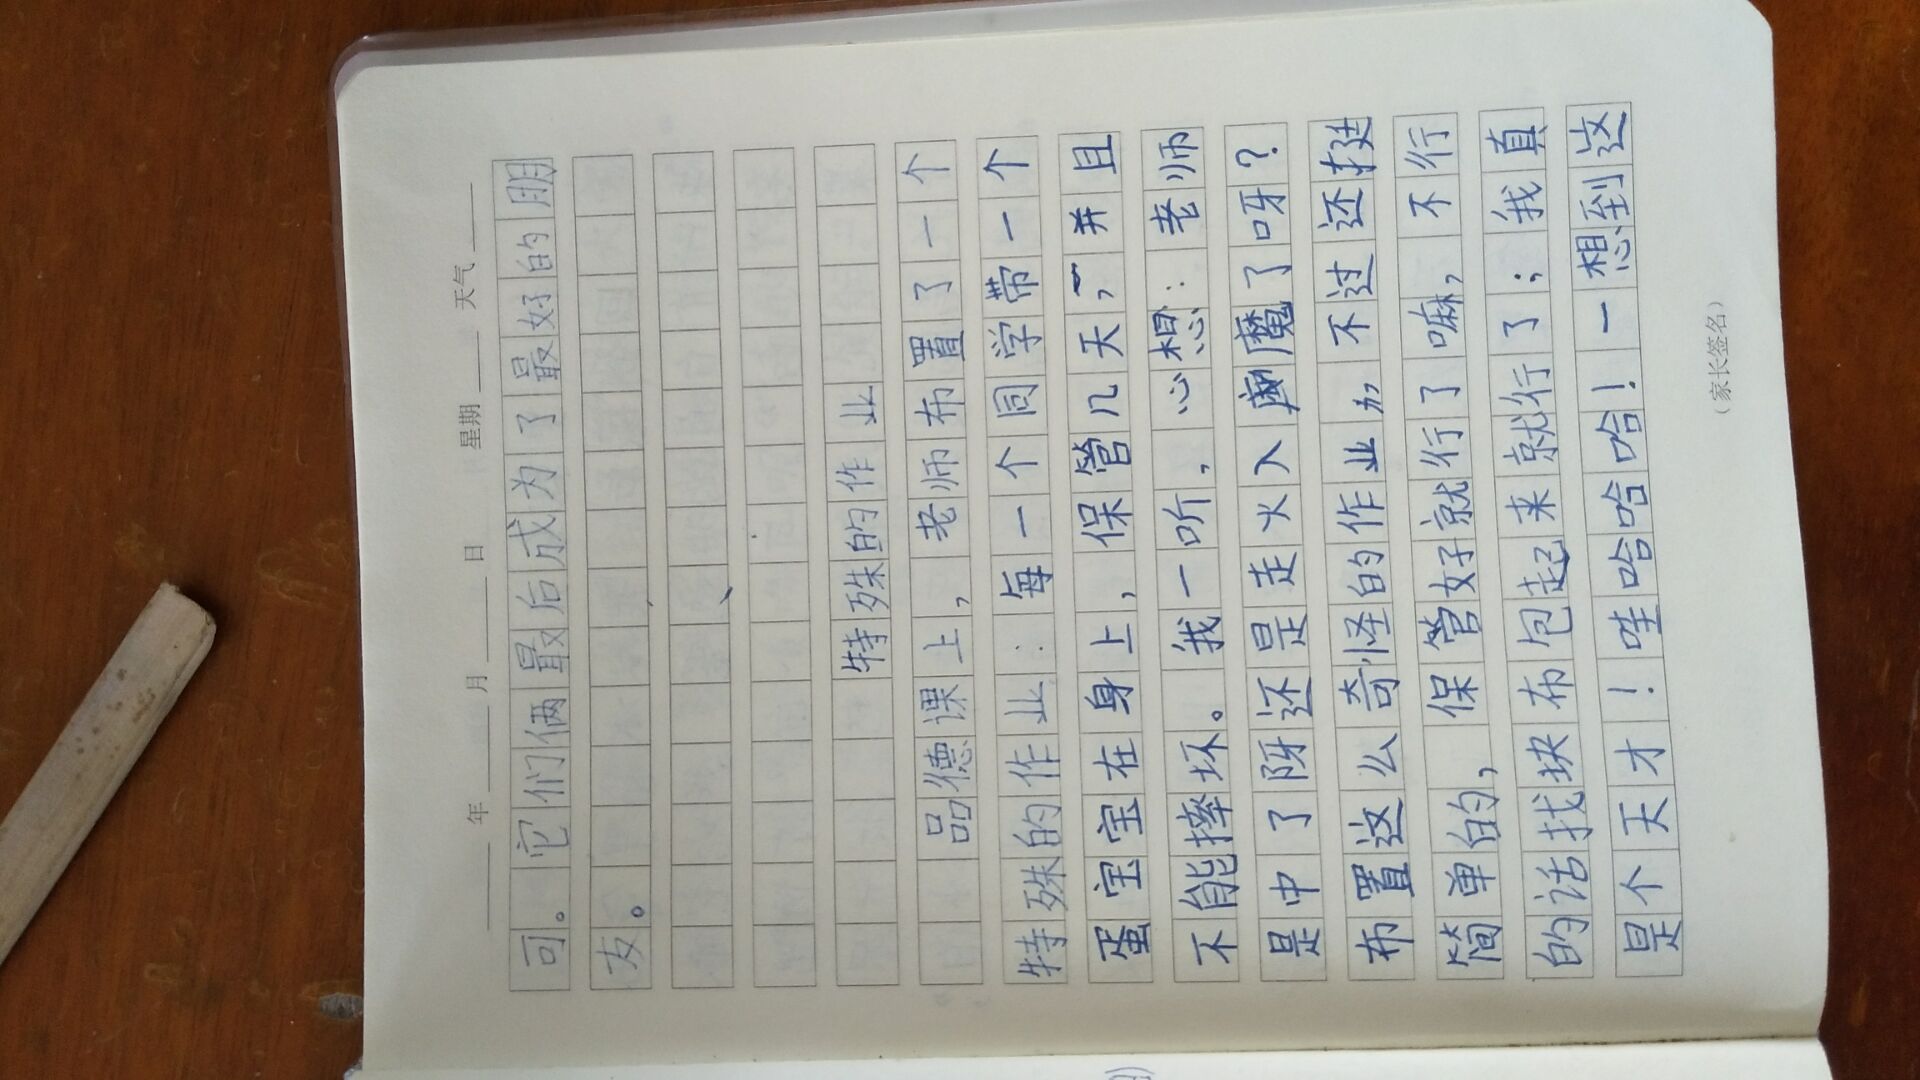 年 月 日 星期 天气
可。它们俩最后成为了最好的朋
友。
特殊的作业
品德课上，老师布置了一个
特殊的作业：每一个同学带一个
蛋宝宝在身上，保管几天，并且
不能摔坏。我一听，心想：老师
是中了阿还是走火入魔了呀？
布置这么奇怪的作业，不过还挺
简单的，保管好就行了嘛，不行
的话找块布包起来就行了；我真
是个天才！哇哈哈哈！一想到这
（家长签名）